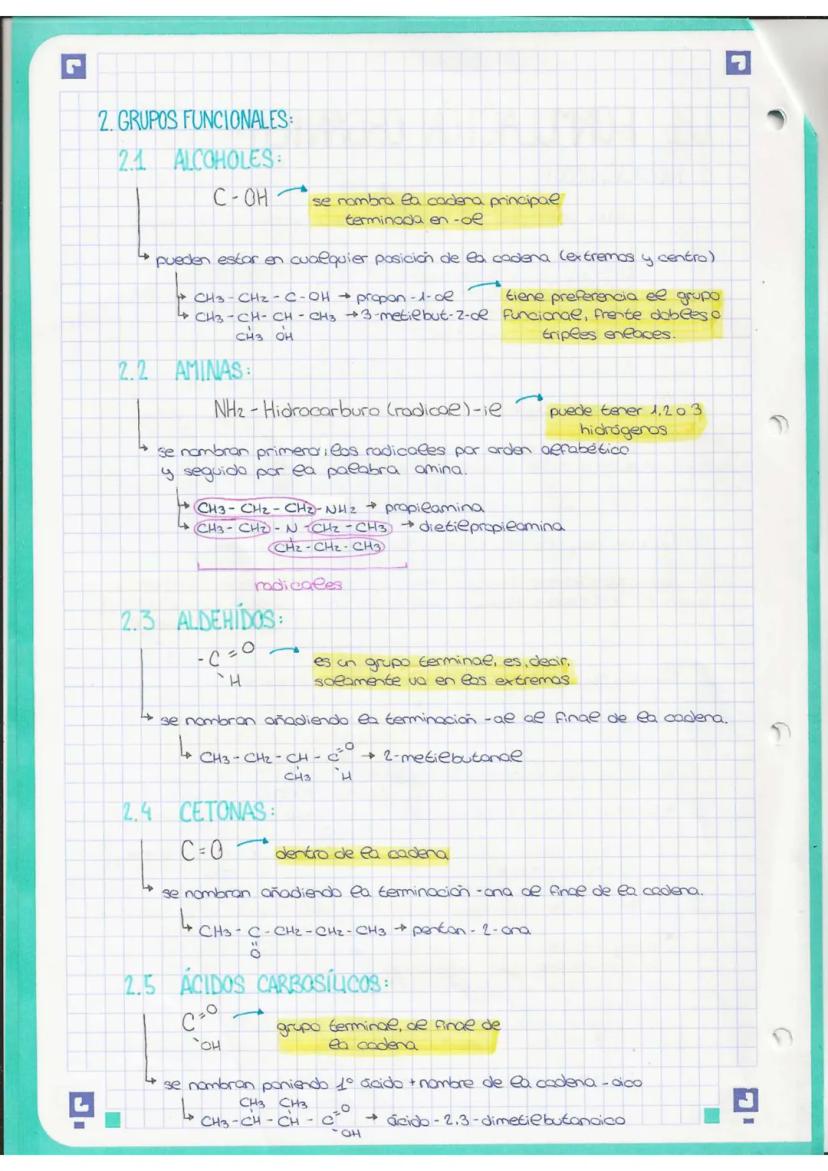 2. GRUPOS FUNCIONALES:
2.1 ALCOHOLES:
C - OH → se nombra la cadena principal
terminada en -ol
↳ pueden estar en cualquier posición de la cadena (extremos y centro)
↳ CH3 - CH2 - C - OH → propan -1- ol
tiene preferencia el grupo
↳ CH3 - CH - CH - CH3 → 3-metilbut-2-ol
funcional, frente dobles o
CH3 OH
triples enlaces.
2.2 AMINAS:
NH2 - Hidrocarburo (radical) -il → puede tener 1,2 o 3
hidrógenos
↳ se nombran primero los radicales por orden alfabético
y seguido por la palabra amina.
↳ CH3 - CH2 - CH2 - NH2 → propilamina
↳ CH3 - CH2 - N - CH2 - CH3 → dietilpropilamina
CH2 - CH2 - CH3
radicales
2.3 ALDEHÍDOS:
- C = O
H
→ es un grupo terminal, es, decir,
solamente va en los extremos
↳ se nombran añadiendo la terminación -al al final de la cadena.
↳ CH3 - CH2 - CH - C = O → 2-metilbutanal
CH3 H
2.4 CETONAS:
C = O → dentro de la cadena
↳ se nombran añadiendo la terminación -ona al final de la cadena.
↳ CH3 - C - CH2 - CH2 - CH3 → pentan - 2 - ona
O
2.5 ÁCIDOS CARBOSÍLICOS:
C = O
OH
→ grupo terminal, al final de
la cadena
↳ se nombran poniendo 1º ácido + nombre de la cadena - oico
CH3 CH3
↳ CH3 - CH - CH - C = O → ácido - 2,3 - dimetilbutanoico
OH